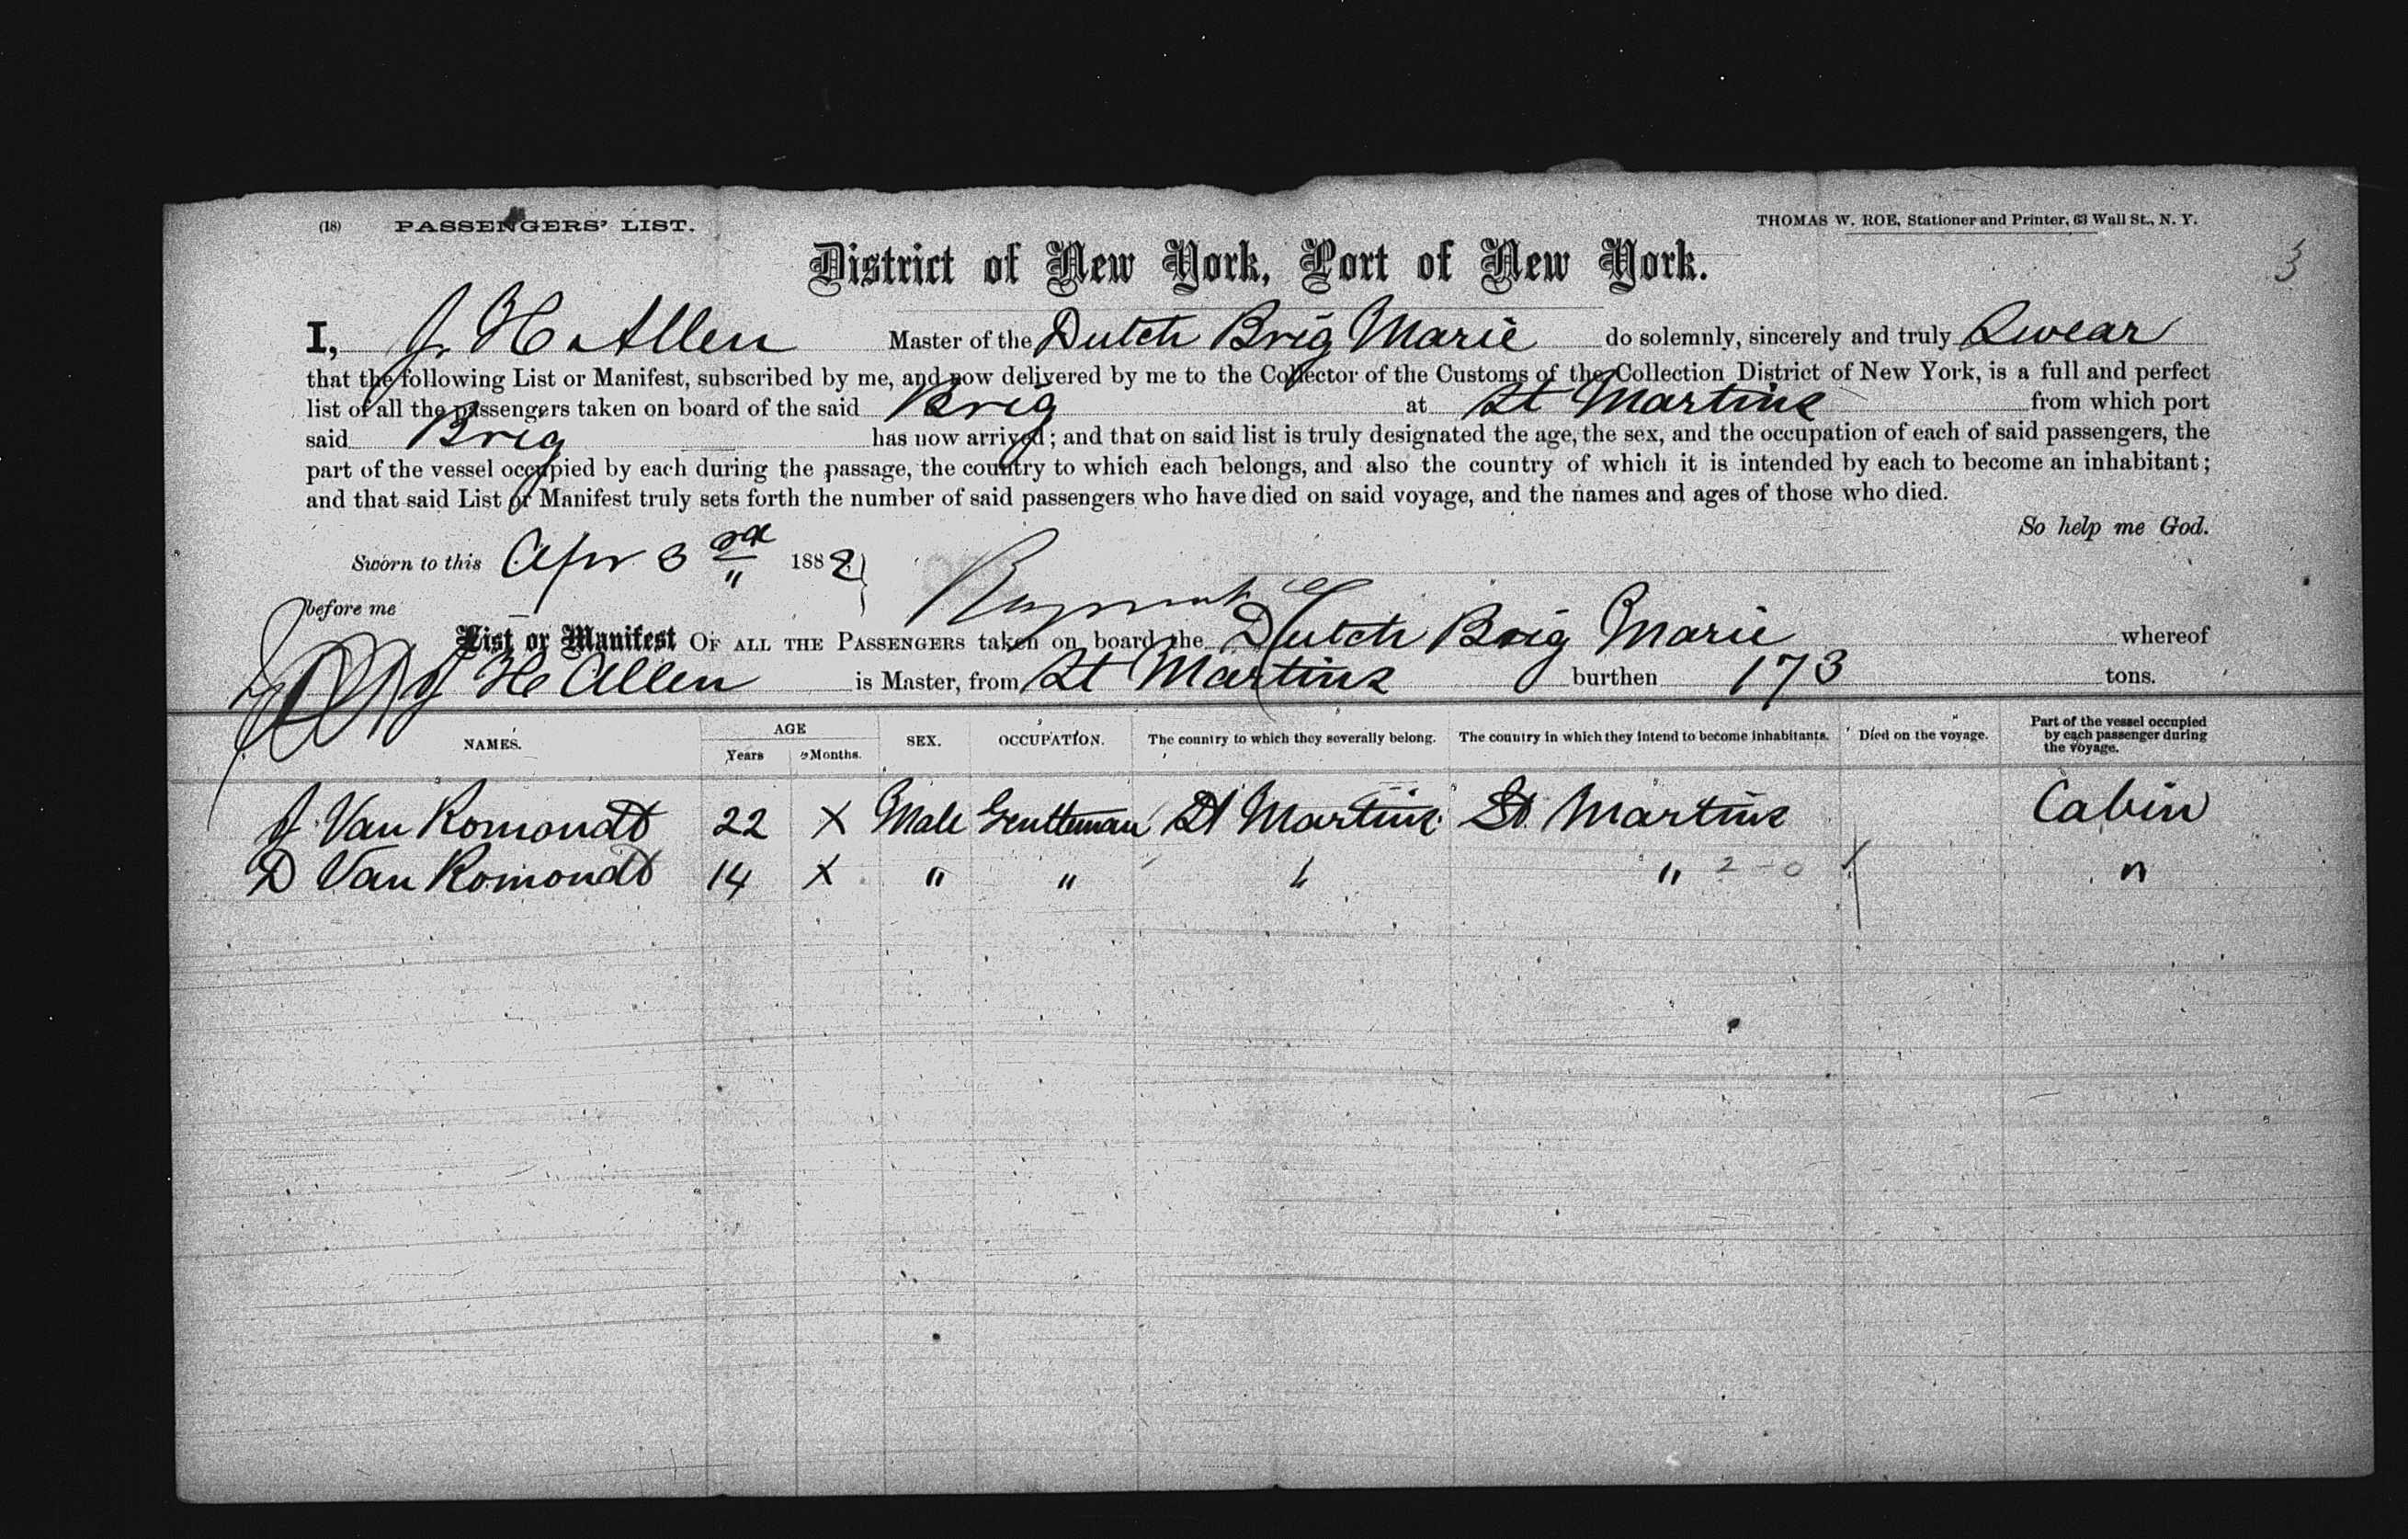 (18) PASSENGERS' LIST. THOMAS W. ROE, Stationer and Printer, 63 Wall St., N. Y.
3
District of New York, Port of New York.
I, J. H. Allen Master of the Dutch Brig Marie do solemnly, sincerely and truly Swear
that the following List or Manifest, subscribed by me, and now delivered by me to the Collector of the Customs of the Collection District of New York, is a full and perfect
list of all the passengers taken on board of the said Brig at St Martins from which port
said Brig has now arrived; and that on said list is truly designated the age, the sex, and the occupation of each of said passengers, the
part of the vessel occupied by each during the passage, the country to which each belongs, and also the country of which it is intended by each to become an inhabitant;
and that said List or Manifest truly sets forth the number of said passengers who have died on said voyage, and the names and ages of those who died.
So help me God.
Sworn to this Apr 3rd 1882
before me
List or Manifest OF ALL THE PASSENGERS taken on board the Dutch Brig Marie whereof
J H Allen is Master, from St Martins burthen 173 tons.
NAMES. AGE Years Months. SEX. OCCUPATION. The country to which they severally belong. The country in which they intend to become inhabitants. Died on the voyage. Part of the vessel occupied by each passenger during the voyage.
J. Van Romondt 22 X Male Gentleman St Martins St Martins Cabin
D Van Romondt 14 X " " " " 2-0 "